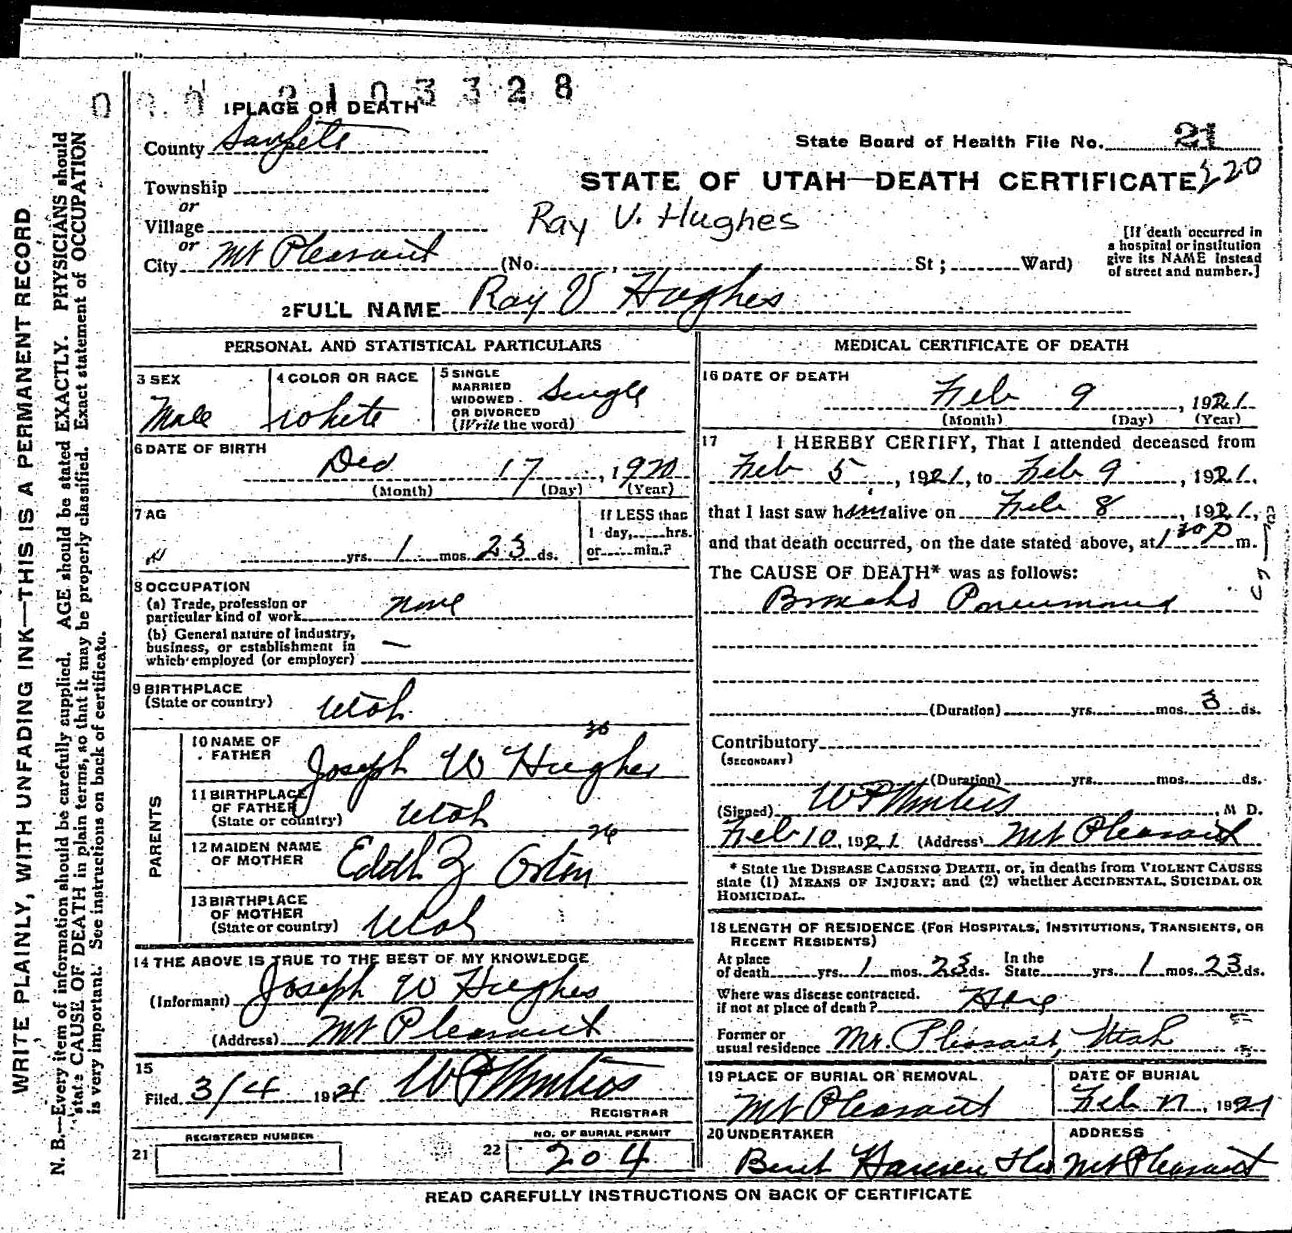 2103328
1 PLACE OF DEATH
County Sanpete
State Board of Health File No. 21
220
Township
or
STATE OF UTAH—DEATH CERTIFICATE
Ray V. Hughes
Village
or
City Mt Pleasant (No. , St; Ward)
[If death occurred in a hospital or institution give its NAME instead of street and number.]
2 FULL NAME Ray V Hughes
PERSONAL AND STATISTICAL PARTICULARS
3 SEX Male
4 COLOR OR RACE white
5 SINGLE MARRIED WIDOWED OR DIVORCED (Write the word) Single
6 DATE OF BIRTH
Dec 17, 1920
(Month) (Day) (Year)
7 AG
yrs. 1 mos. 23 ds.
If LESS than
1 day, hrs.
or min.?
8 OCCUPATION
(a) Trade, profession or
particular kind of work none
(b) General nature of industry,
business, or establishment in
which employed (or employer) —
9 BIRTHPLACE
(State or country) Utah
PARENTS
10 NAME OF FATHER Joseph W Hughes
11 BIRTHPLACE OF FATHER (State or country) Utah
12 MAIDEN NAME OF MOTHER Edith Z
26
13 BIRTHPLACE OF MOTHER (State or country) Utah
14 THE ABOVE IS TRUE TO THE BEST OF MY KNOWLEDGE
(Informant) Joseph W Hughes
(Address) Mt Pleasant
15
Filed 3/4 1921
REGISTRAR
21 REGISTERED NUMBER
22 NO. OF BURIAL PERMIT 204
MEDICAL CERTIFICATE OF DEATH
16 DATE OF DEATH
Feb 9, 1921
(Month) (Day) (Year)
17 I HEREBY CERTIFY, That I attended deceased from
Feb 5, 1921, to Feb 9, 1921,
that I last saw him alive on Feb 8, 1921,
and that death occurred, on the date stated above, at 1 30 P m.
The CAUSE OF DEATH* was as follows:
Broncho Pneumonia
(Duration) yrs. mos. 3 ds.
Contributory
(SECONDARY)
(Duration) yrs. mos. ds.
(Signed) M D.
Feb 10, 1921 (Address) Mt Pleasant
* State the DISEASE CAUSING DEATH, or, in deaths from VIOLENT CAUSES
state (1) MEANS OF INJURY; and (2) whether ACCIDENTAL, SUICIDAL OR
HOMICIDAL.
18 LENGTH OF RESIDENCE (FOR HOSPITALS, INSTITUTIONS, TRANSIENTS, OR
RECENT RESIDENTS)
At place of death yrs. 1 mos. 23 ds. In the State yrs. 1 mos. 23 ds.
Where was disease contracted.
if not at place of death?
Former or
usual residence Mt. Pleasant, Utah
19 PLACE OF BURIAL OR REMOVAL
Mt Pleasant
DATE OF BURIAL
Feb 1921
20 UNDERTAKER
Hansen
ADDRESS
Mt Pleasant
READ CAREFULLY INSTRUCTIONS ON BACK OF CERTIFICATE
WRITE PLAINLY, WITH UNFADING INK—THIS IS A PERMANENT RECORD
N. B.—Every item of information should be carefully supplied. AGE should be stated EXACTLY. PHYSICIANS should
state CAUSE OF DEATH in plain terms, so that it may be properly classified. Exact statement of OCCUPATION
is very important. See instructions on back of certificate.